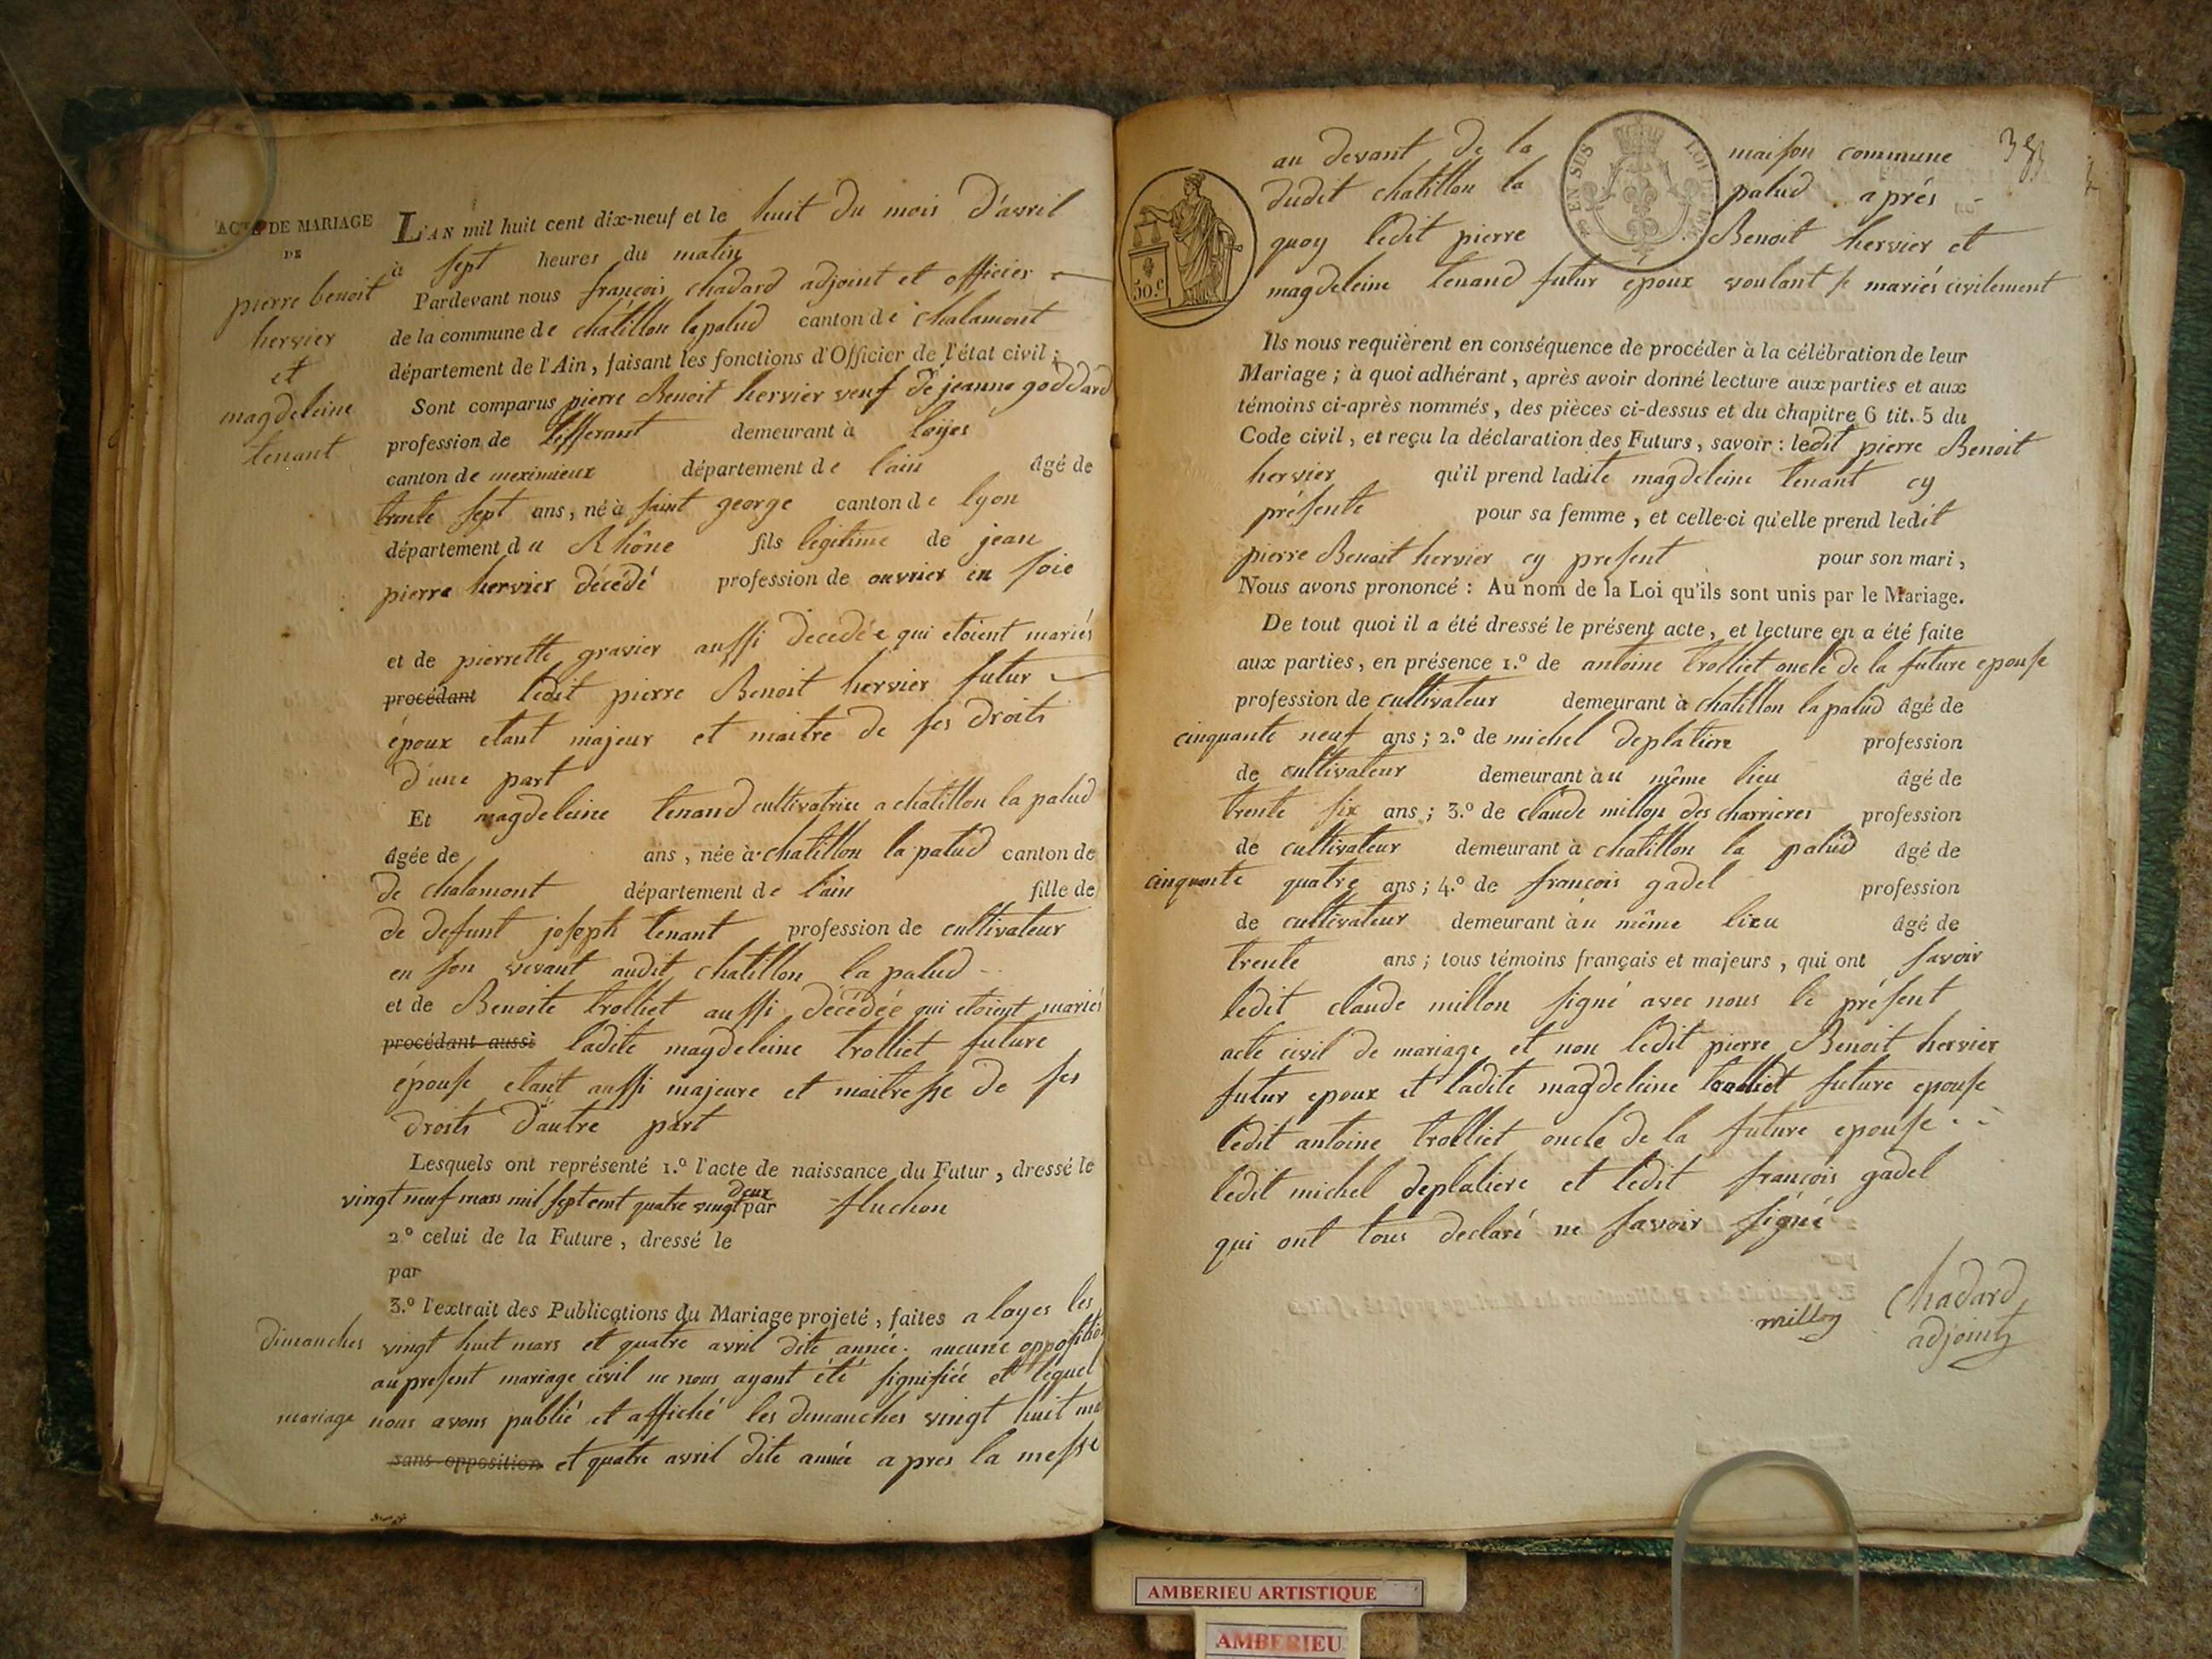 ACTE DE MARIAGE
DE
pierre benoit
hervier
et
magdeleine
tenant
L'AN mil huit cent dix-neuf et le huit du mois d'avril
à sept heures du matin
Pardevant nous françois chadard adjoint et officier
de la commune de chatillon lapalud canton de chalamont
département de l'Ain, faisant les fonctions d'Officier de l'état civil;
Sont comparus pierre Benoit hervier veuf de jeanne goddard
profession de tifferant demeurant à loyes
canton de meximieux département de l'ain âgé de
trente sept ans, né à saint george canton de lyon
département du Rhône fils légitime de jean
pierre hervier décédé profession de ouvrier en soie
et de pierrette gravier aussi decedée qui etoient mariés
procédant ledit pierre Benoit hervier futur
époux etant majeur et maitre de ses droits
d'une part
Et magdeleine tenand cultivatrice a chatillon la palud
âgée de ans, née à chatillon la palud canton de
de chalamont département de l'ain fille de
de defunt joseph tenant profession de cultivateur
en son vivant audit chatillon la palud
et de Benoite trolliet aussi décédée qui etoient mariés
procédant aussi ladite magdeleine trolliet future
épouse etant aussi majeure et maitresse de ses
droits d'autre part
Lesquels ont représenté 1.º l'acte de naissance du Futur, dressé le
vingt neuf mars mil sept cent quatre vingt deux par fluchon
2.º celui de la Future, dressé le
par
3.º l'extrait des Publications du Mariage projeté, faites a loyes les
dimanches vingt huit mars et quatre avril dite année. aucune opposition
au present mariage civil ne nous ayant été signifiée et lequel
mariage nous avons publié et affiché les dimanches vingt huit
sans opposition et quatre avril dite année apres la messe
au devant de la maison commune 383
dudit chatillon la palud après
quoy ledit pierre Benoit hervier et
magdeleine tenand futur epoux voulant se mariés civilement
EN SUS
50.c
Ils nous requièrent en conséquence de procéder à la célébration de leur
Mariage; à quoi adhérant, après avoir donné lecture aux parties et aux
témoins ci-après nommés, des pièces ci-dessus et du chapitre 6 tit. 5 du
Code civil, et reçu la déclaration des Futurs, savoir: ledit pierre Benoit
hervier qu'il prend ladite magdeleine tenant cy
présente pour sa femme, et celle-ci qu'elle prend ledit
pierre Benoit hervier cy present pour son mari,
Nous avons prononcé: Au nom de la Loi qu'ils sont unis par le Mariage.
De tout quoi il a été dressé le présent acte, et lecture en a été faite
aux parties, en présence 1.º de antoine trolliet oncle de la future epouse
profession de cultivateur demeurant à chatillon la palud âgé de
cinquante neuf ans; 2.º de michel deplatiere profession
de cultivateur demeurant au même lieu âgé de
trente six ans; 3.º de claude millon des charrieres profession
de cultivateur demeurant à chatillon la palud âgé de
cinquante quatre ans; 4.º de françois gadel profession
de cultivateur demeurant au même lieu âgé de
trente ans; tous témoins français et majeurs, qui ont savoir
ledit claude millon signé avec nous le présent
acte civil de mariage et non ledit pierre Benoit hervier
futur epoux et ladite magdeleine trolliet future epouse
ledit antoine trolliet oncle de la future epouse
ledit michel deplatiere et ledit françois gadel
qui ont tous declaré ne savoir signé
millon
Chadard
adjoint
AMBERIEU ARTISTIQUE
AMBERIEU